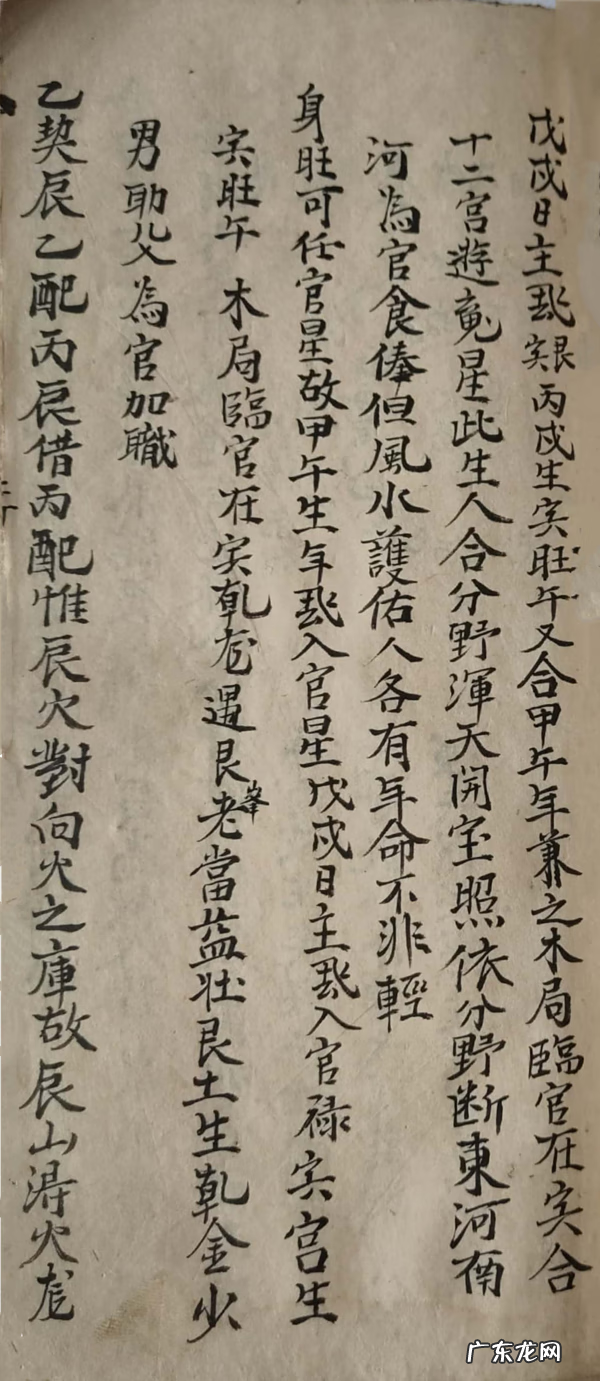 戊戌日主寅艮丙戌生寅旺午又合甲午年兼之木局臨官在寅合
十二宮遊星此生人合分野渾天開宝照依分野断東河南
河為官食俸但風水護佑人各有年命不非輕
身旺可任官星故甲午生年入官星戊戌日主入官禄寅宮生
寅旺午 木局臨官在寅乹龙遇艮峯老當益壮艮土生乹金少
男助父為官加職
乙契辰乙配丙辰借丙配惟辰穴對向火之庫故辰山淂火龙
广东龙网